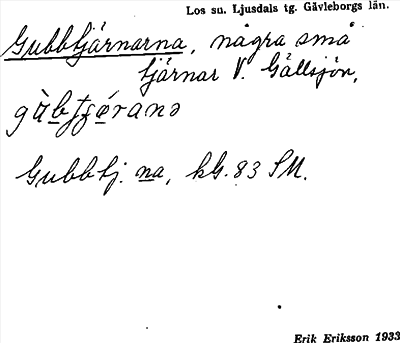 Los sn. Ljusdals tg. Gävleborgs län.
Gubbtjärnarna, några små
tjärnar V. Gällsjön,
gùbtʃæ̀ranə
Gubbtj. na, kbl. 83 SM.
Erik Eriksson 1933